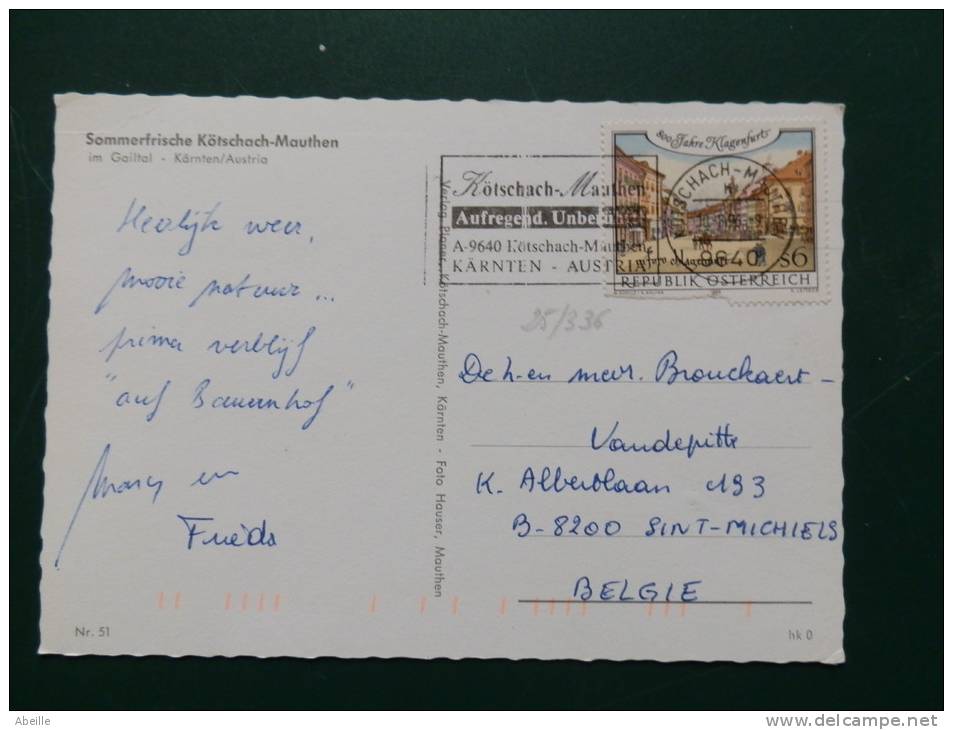 Sommerfrische Kötschach-Mauthen
im Gailtal - Kärnten/Austria
Heerlijk weer,
mooie natuur...
prima verblijf
"auf Bauernhof"
en
Frieda
Nr. 51
Verlag Planer, Kötschach-Mauthen, Kärnten - Foto Hauser, Mauthen
Kötschach-Mauthen
Aufregend.
A-9640 Kötschach-Mauthen
KÄRNTEN - AUSTRIA
800 Jahre Klagenfurt
KÖTSCHACH-MAUTHEN
9640
S6
REPUBLIK ÖSTERREICH
25/336
De h. en mevr. Brouckaert-
Vandepitte
K. Albertlaan 193
B-8200 SINT-MICHIELS
BELGIE
hk 0
Abeille
www.delcampe.net